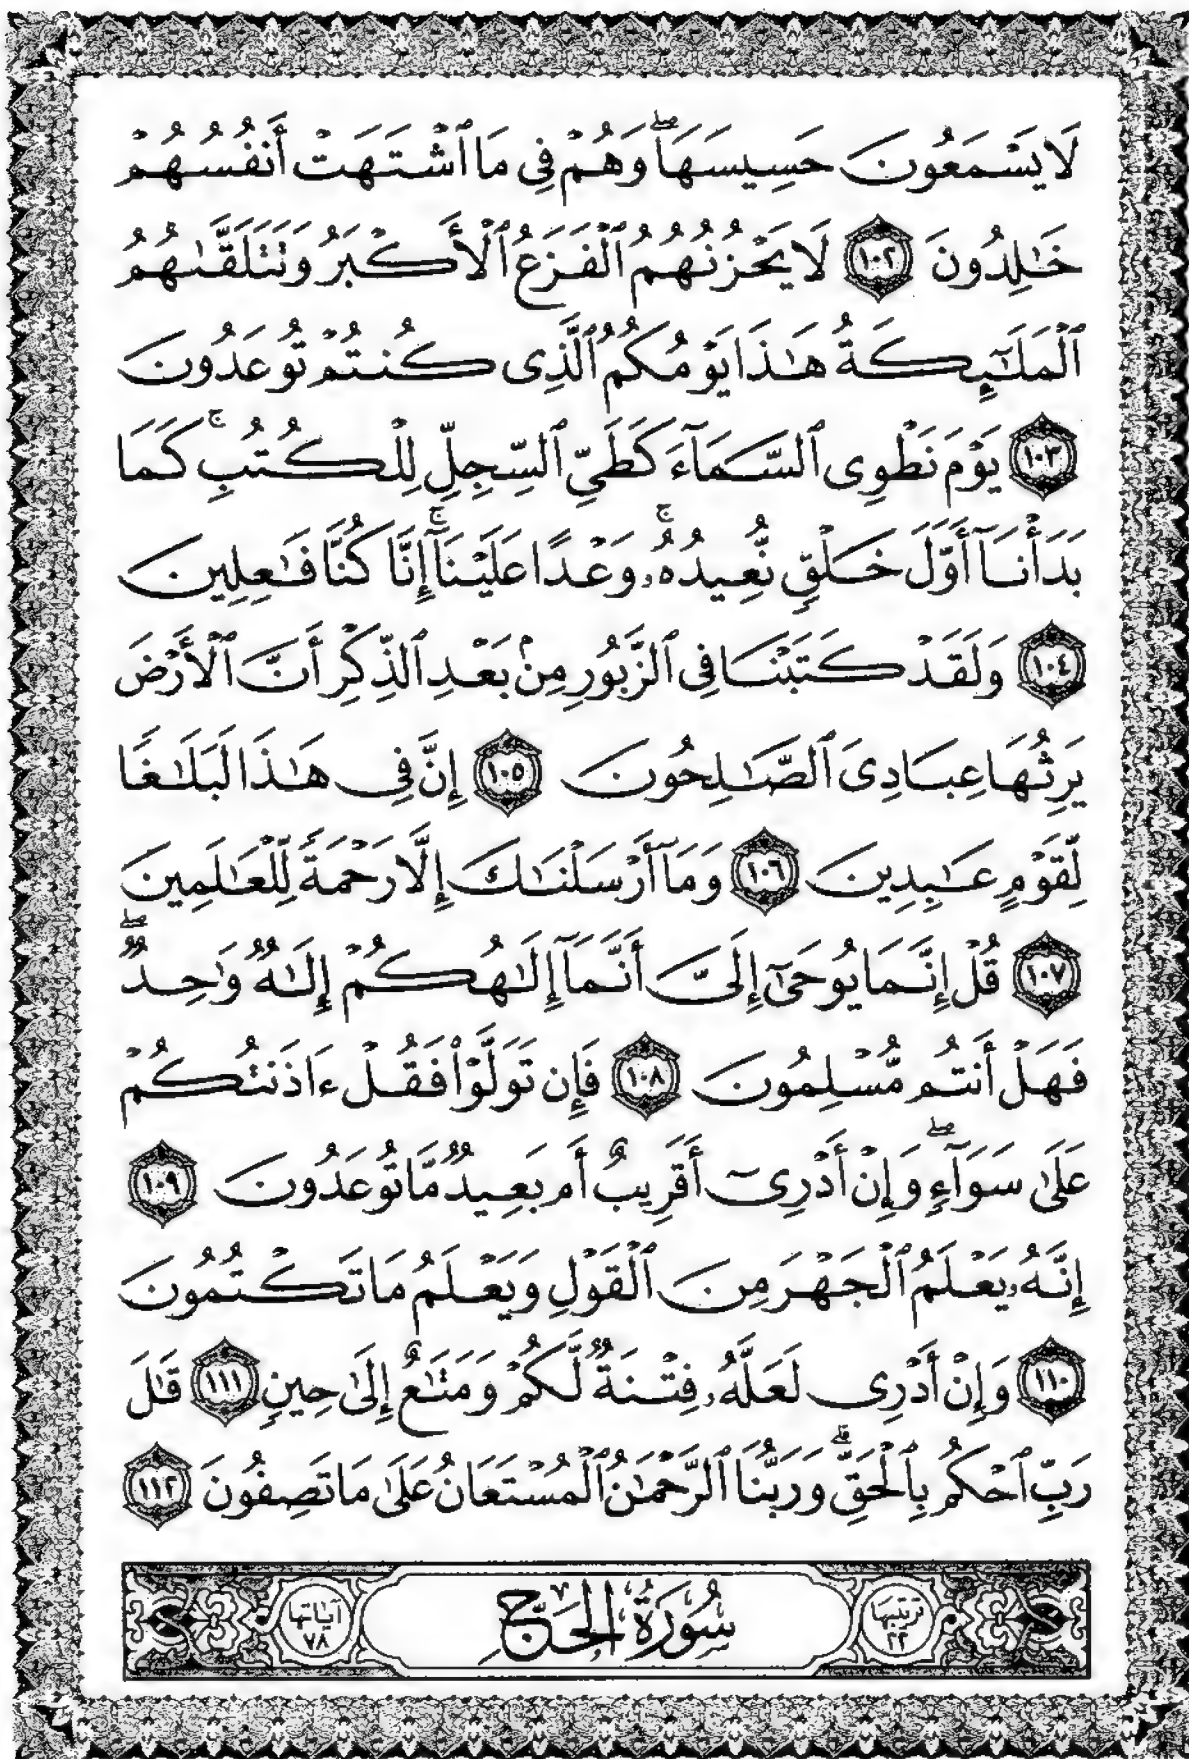 لَا يَسْمَعُونَ حَسِيسَهَا ۖ وَهُمْ فِى مَا ٱشْتَهَتْ أَنفُسُهُمْ
خَـٰلِدُونَ ١٠٢ لَا يَحْزُنُهُمُ ٱلْفَزَعُ ٱلْأَكْبَرُ وَتَتَلَقَّىٰهُمُ
ٱلْمَلَـٰٓئِكَةُ هَـٰذَا يَوْمُكُمُ ٱلَّذِى كُنتُمْ تُوعَدُونَ
١٠٣ يَوْمَ نَطْوِى ٱلسَّمَآءَ كَطَىِّ ٱلسِّجِلِّ لِلْكُتُبِ ۚ كَمَا
بَدَأْنَآ أَوَّلَ خَلْقٍ نُّعِيدُهُۥ ۚ وَعْدًا عَلَيْنَآ ۚ إِنَّا كُنَّا فَـٰعِلِينَ
١٠٤ وَلَقَدْ كَتَبْنَا فِى ٱلزَّبُورِ مِنۢ بَعْدِ ٱلذِّكْرِ أَنَّ ٱلْأَرْضَ
يَرِثُهَا عِبَادِىَ ٱلصَّـٰلِحُونَ ١٠٥ إِنَّ فِى هَـٰذَا لَبَلَـٰغًا
لِّقَوْمٍ عَـٰبِدِينَ ١٠٦ وَمَآ أَرْسَلْنَـٰكَ إِلَّا رَحْمَةً لِّلْعَـٰلَمِينَ
١٠٧ قُلْ إِنَّمَا يُوحَىٰٓ إِلَىَّ أَنَّمَآ إِلَـٰهُكُمْ إِلَـٰهٌ وَٰحِدٌ ۖ
فَهَلْ أَنتُم مُّسْلِمُونَ ١٠٨ فَإِن تَوَلَّوْا۟ فَقُلْ ءَاذَنتُكُمْ
عَلَىٰ سَوَآءٍ ۖ وَإِنْ أَدْرِىٓ أَقَرِيبٌ أَم بَعِيدٌ مَّا تُوعَدُونَ ١٠٩
إِنَّهُۥ يَعْلَمُ ٱلْجَهْرَ مِنَ ٱلْقَوْلِ وَيَعْلَمُ مَا تَكْتُمُونَ
١١٠ وَإِنْ أَدْرِى لَعَلَّهُۥ فِتْنَةٌ لَّكُمْ وَمَتَـٰعٌ إِلَىٰ حِينٍ ١١١ قَـٰلَ
رَبِّ ٱحْكُم بِٱلْحَقِّ ۗ وَرَبُّنَا ٱلرَّحْمَـٰنُ ٱلْمُسْتَعَانُ عَلَىٰ مَا تَصِفُونَ ١١٢
ترتيبها ٢٢ سُورَةُ الْحَجِّ آياتها ٧٨